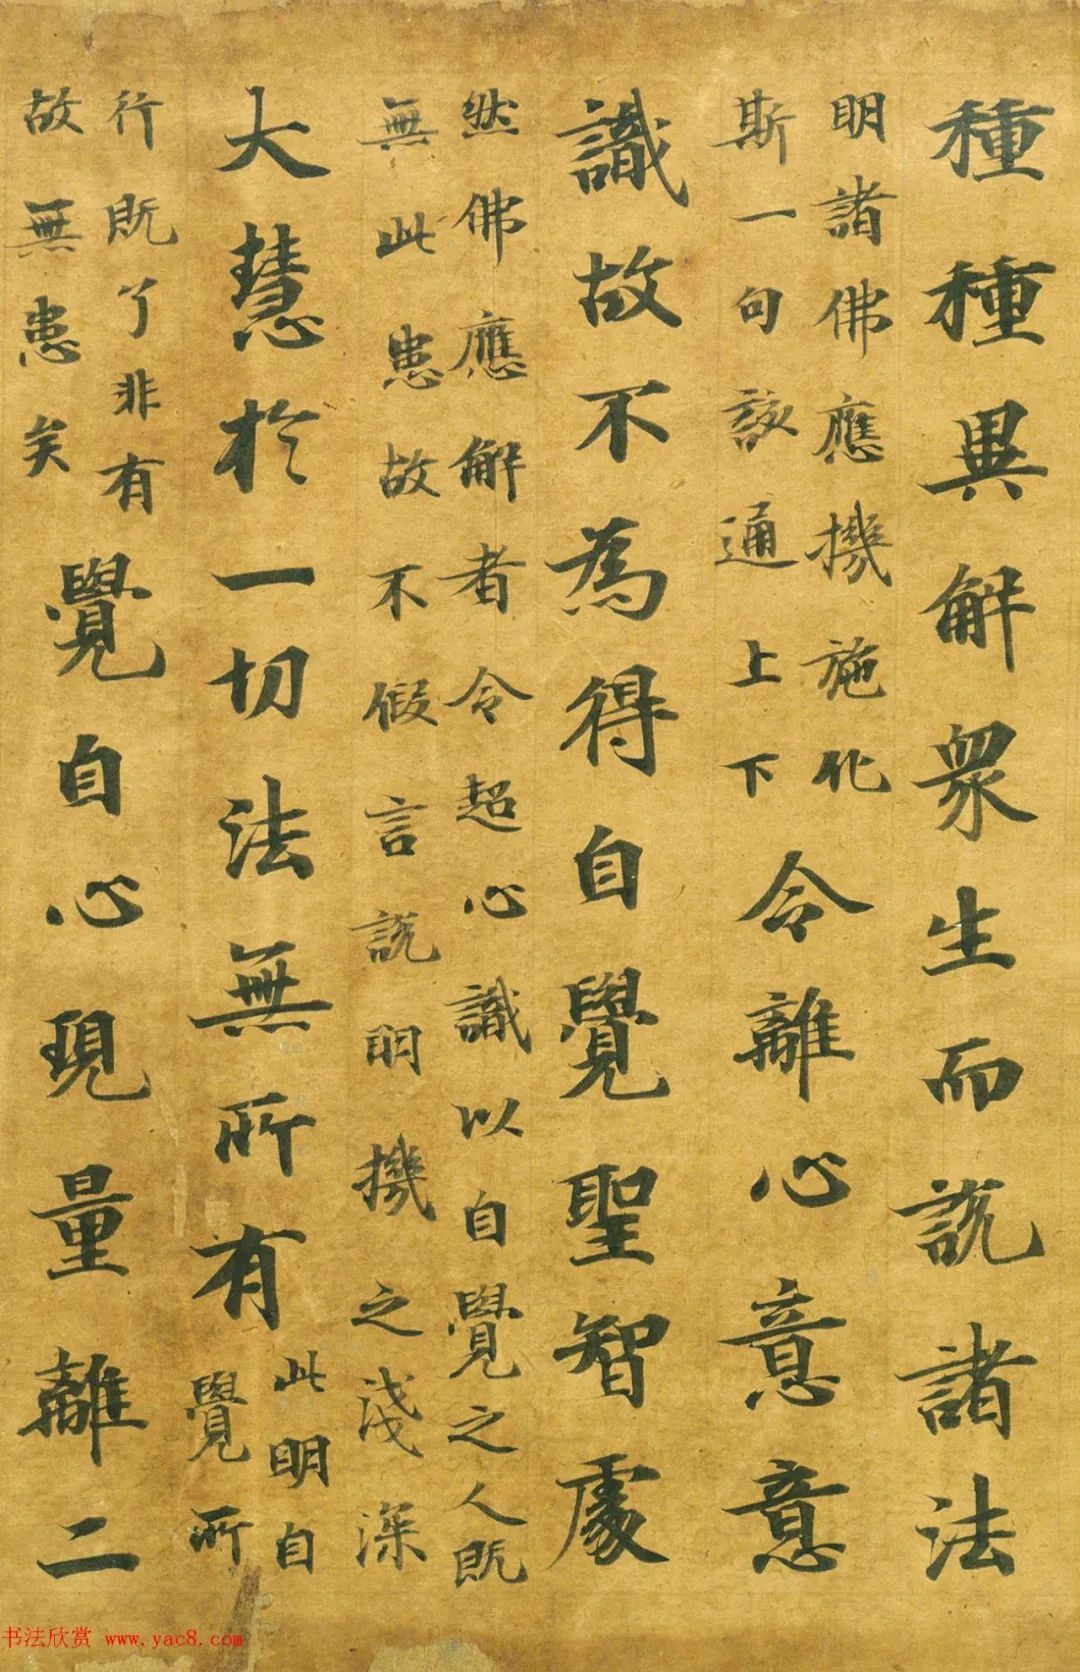 種種異解衆生而說諸法
明諸佛應機施化
斯一句該通上下
令離心意意
識故不為得自覺聖智處
然佛應解者令超心識以自覺之人既
無此患故不假言說明機之淺深
大慧於一切法無所有
此明自
覺所
行既了非有
故無患矣
覺自心現量離二
书法欣赏 www.yac8.com